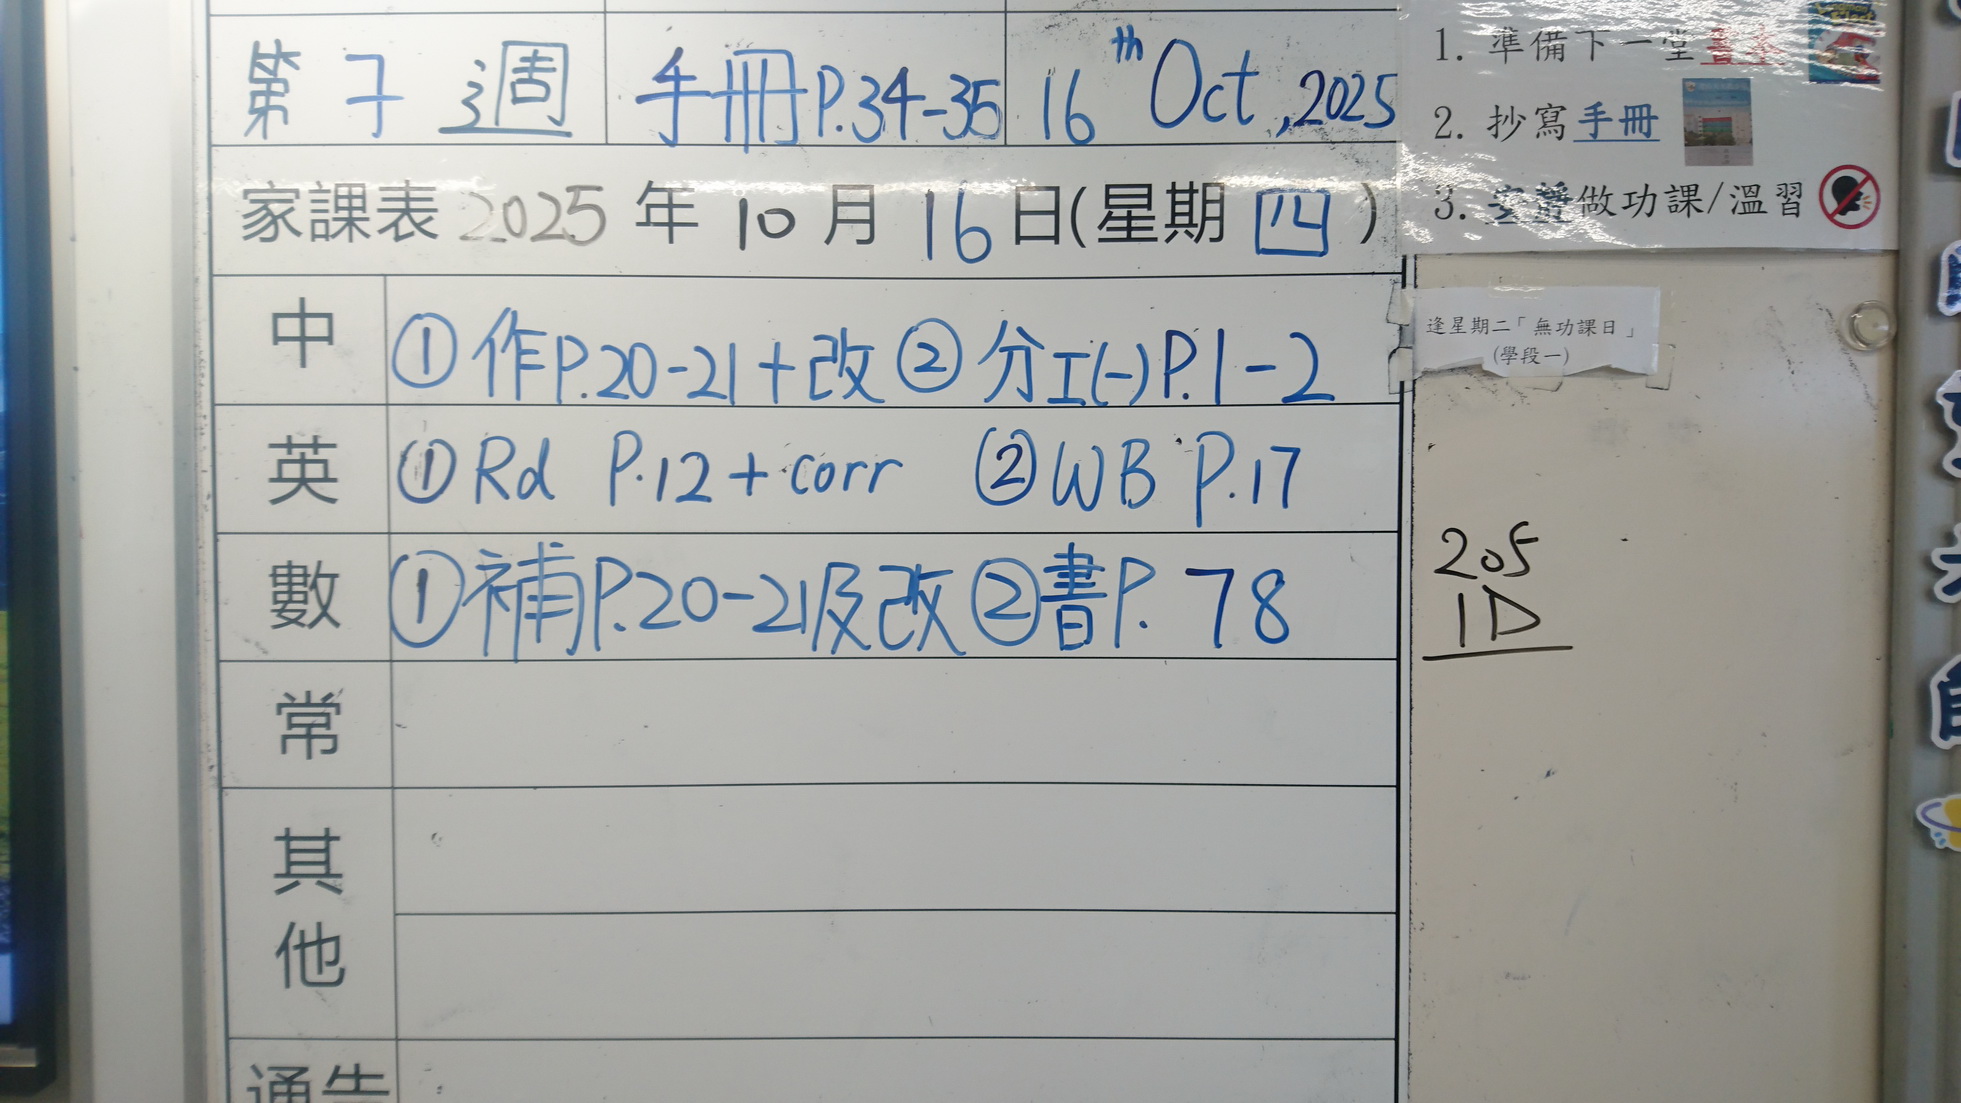 第7週 手冊P.34-35 16th Oct, 2025
家課表 2025 年 10 月 16 日(星期 四 )
中 ①作P.20-21+改 ②分工(一)P.1-2
英 ①Rd P.12+corr ②WB P.17
數 ①補P.20-21及改 ②書P. 78
常
其他
通告
1. 準備下一堂書本
2. 抄寫手冊
3. 安靜做功課/溫習
逢星期二「無功課日」
(學段一)
205
1D